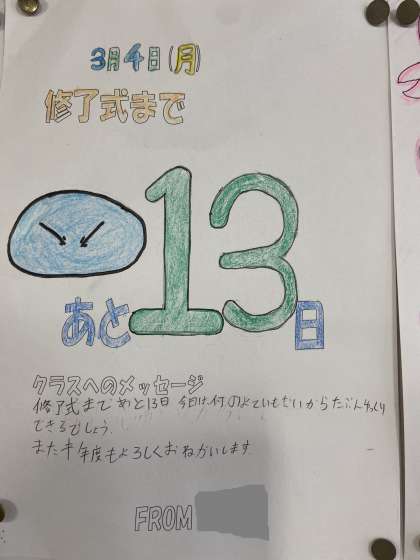 3月4日(月)
修了式まで
あと13日
クラスへのメッセージ
修了式まであと13日 今日は何のよていもないからたぶんゆっくり
できるでしょう.
また来年度もよろしくおねがいします.
FROM